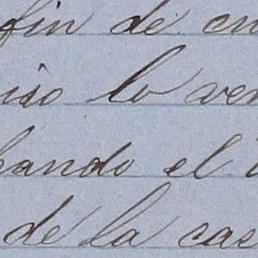 fin de en
iso lo ver
hando el
de la cas